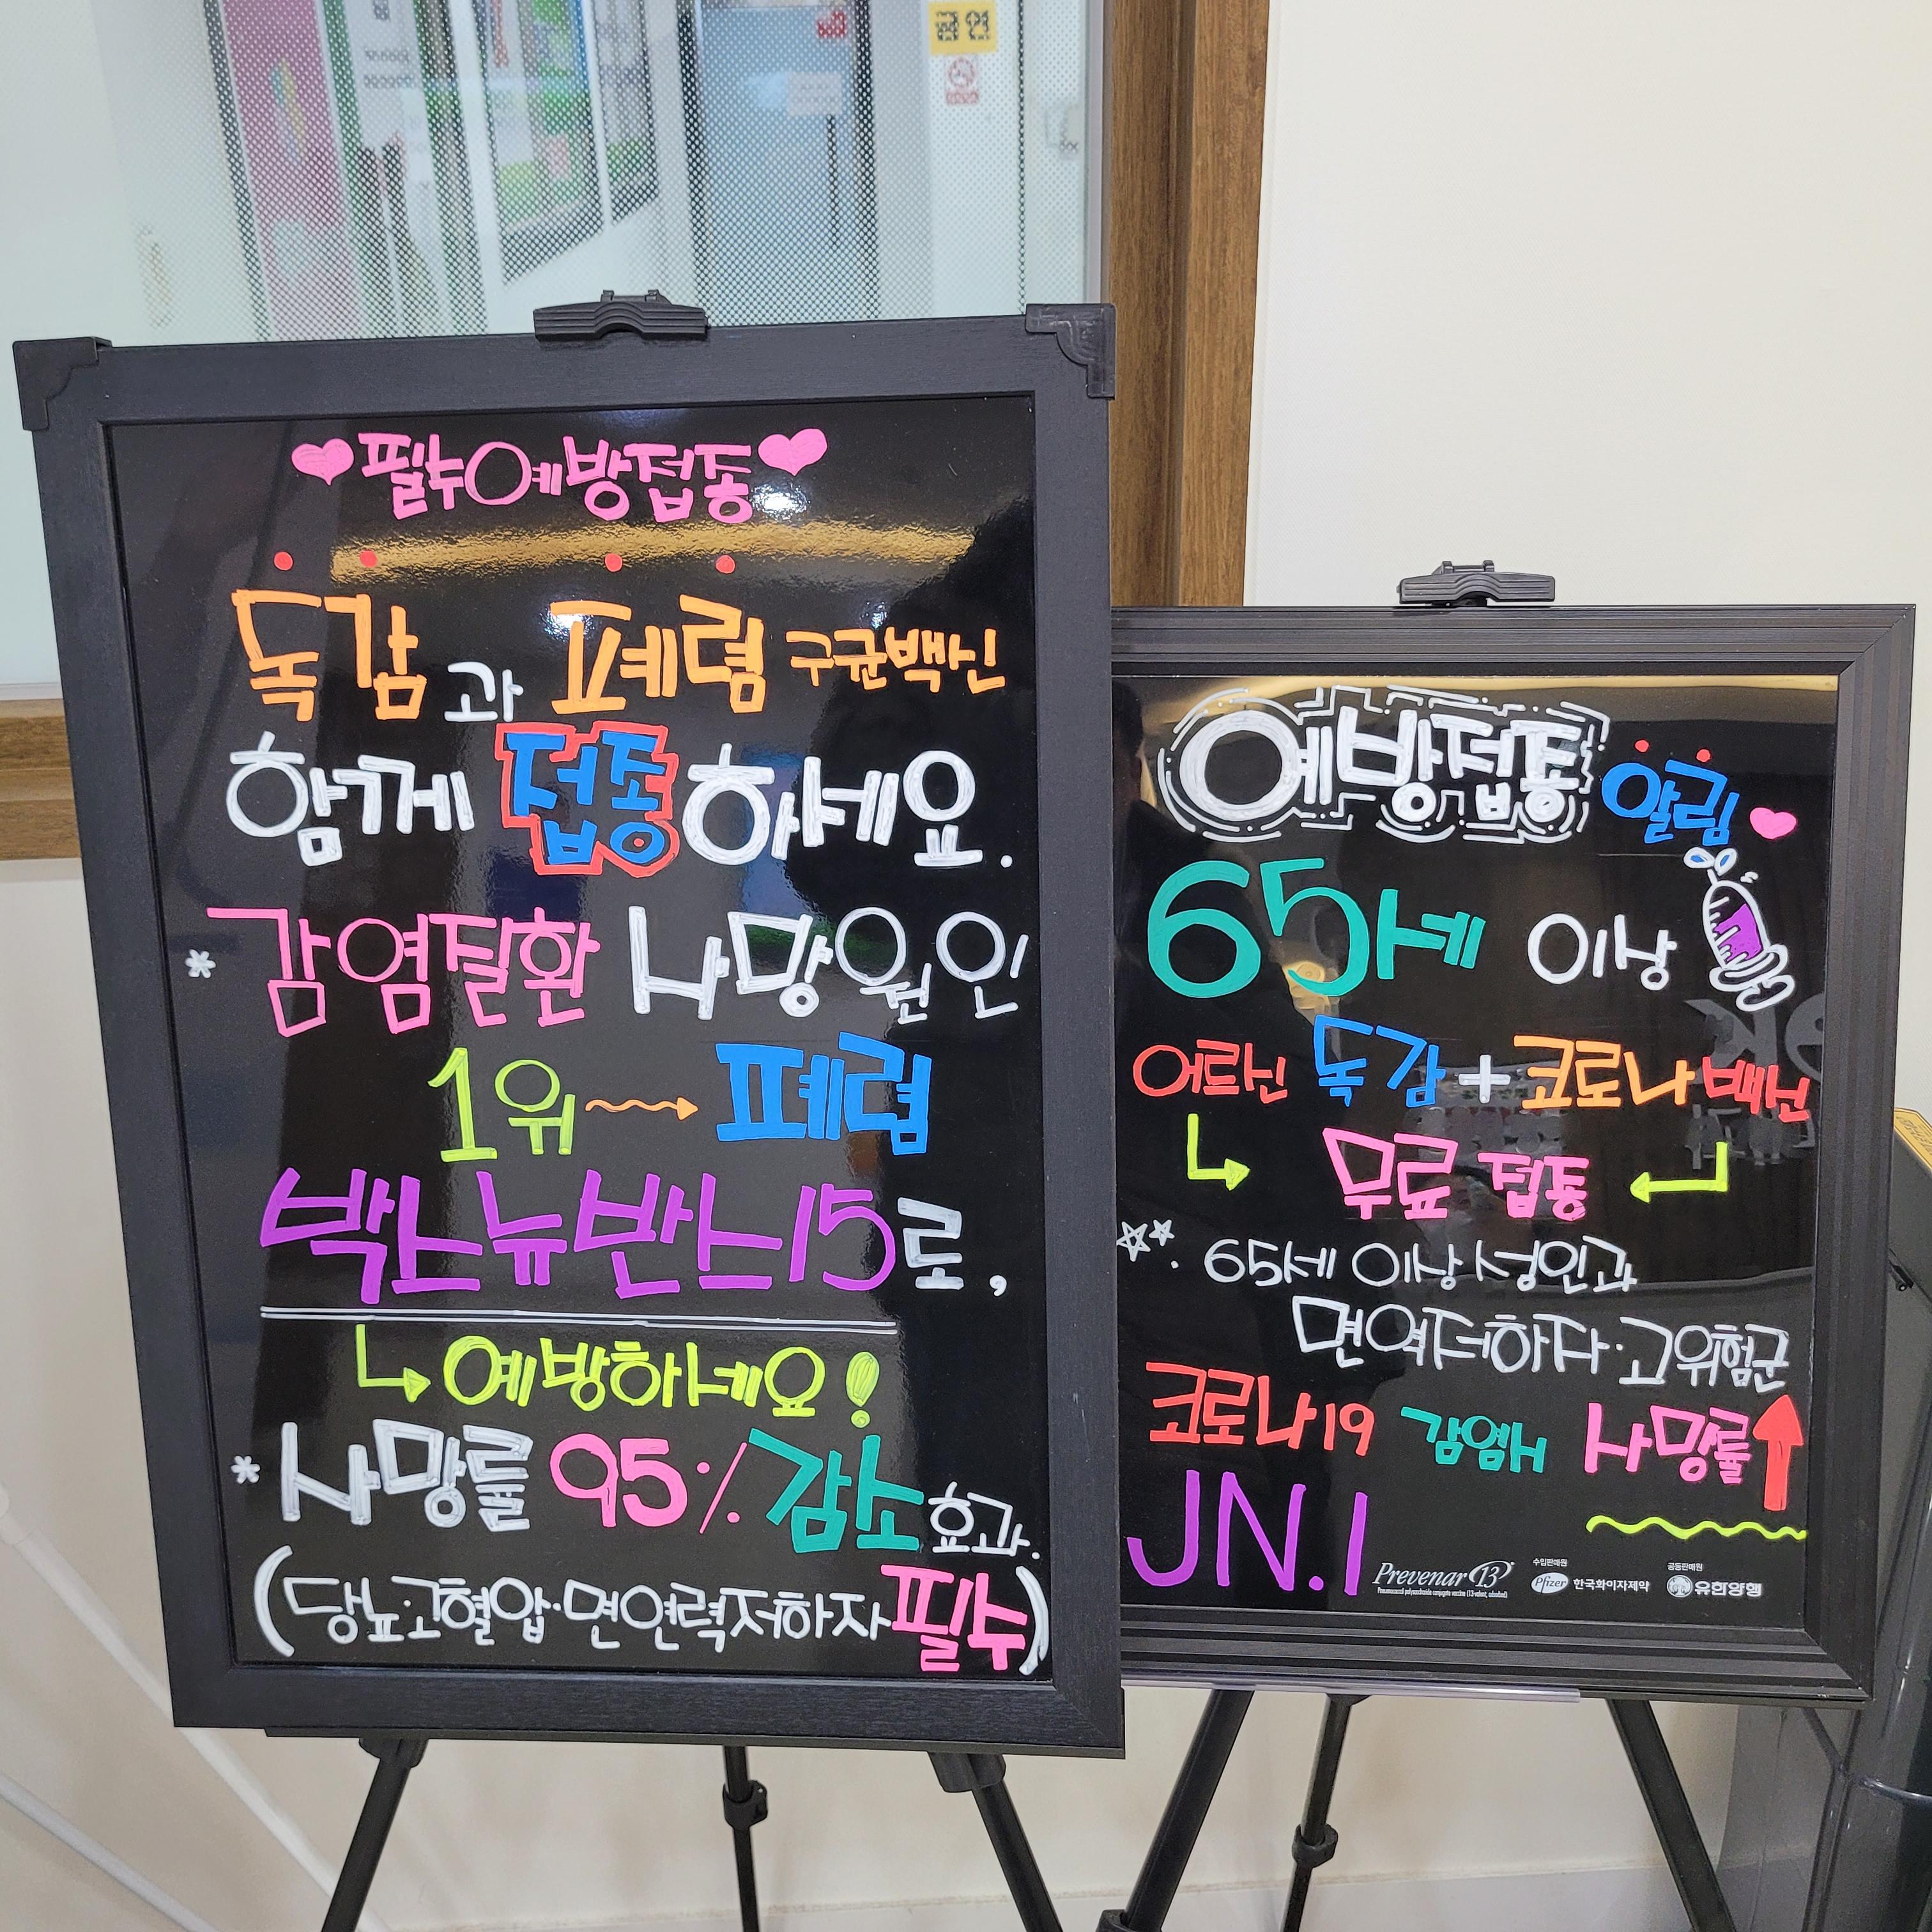 금연
필수예방접종
독감과 폐렴구균백신
함께 접종하세요.
* 감염질환 사망원인
1위 → 폐렴
박스뉴반스15로,
예방하세요!
* 사망률 95% 감소효과.
(당뇨·고혈압·면연력저하자 필수)
예방접종 알림
65세 이상
어르신 독감+코로나백신
무료 접종
65세 이상 성인과
면역저하자·고위험군
코로나19 감염시 사망률↑
JN.1
Prevenar 13
Pneumococcal polysaccharide conjugate vaccine (13-valent, adsorbed)
수입판매원
Pfizer 한국화이자제약
공동판매원
유한양행